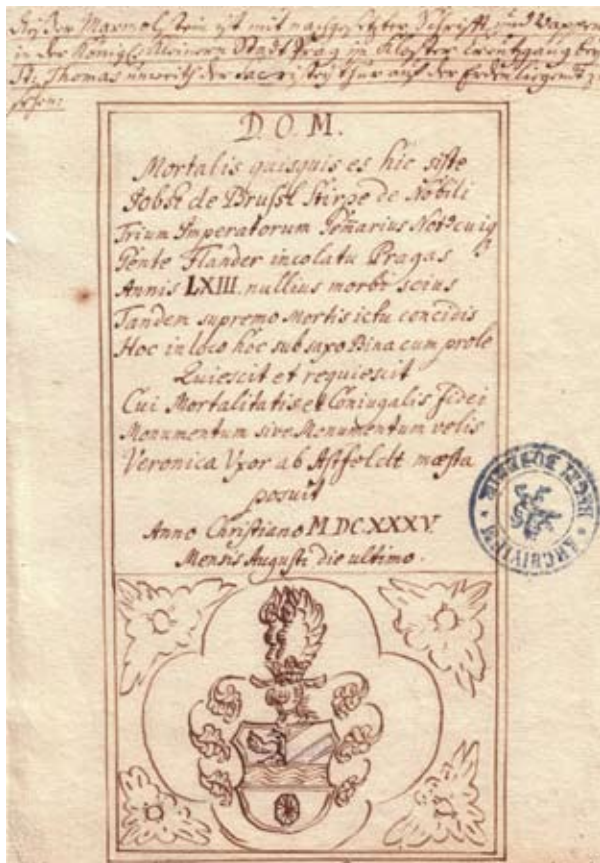 Dießer Marmolstein ist mit nachgesetzter Schrifft und Wapen
in der Königl. Kleinern Stadt Prag in Kloster Creutzgang bey
St. Thomas unweith der Sacristey thur auf der Erden ligent zu
sehen:
D. O. M.
Mortalis quisquis es hic siste
Jobst de Brussl Stirpe de Nobili
Trium Imperatorum Gem̄arius
Gente Flander incolatu Pragas
Annis LXIII. nullius morbi scius
Tandem supremo Mortis ictu concidis
Hoc in loco hoc sub saxo Bina cum prole
Quiescit et requiescit
Cui Mortalitatis et Coniugalis fidei
Monumentum sive Monumentum velis
Veronica Vxor ab Astfeldt mæsta
posuit
Anno Christiano M.DCXXXV.
Mensis Augusti die ultimo.
ARCHIVUM